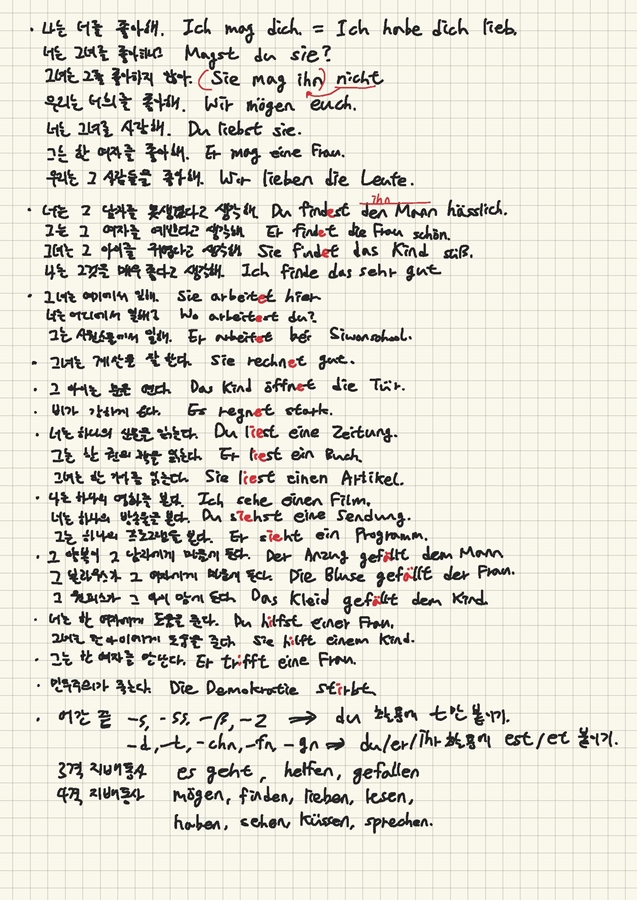 · 나는 너를 좋아해. Ich mag dich. = Ich habe dich lieb.
너는 그녀를 좋아하니 Magst du sie?
그녀는 그를 좋아하지 않아. (Sie mag ihn) nicht
우리는 너희를 좋아해. Wir mögen euch.
너는 그녀를 사랑해. Du liebst sie.
그는 한 여자를 좋아해. Er mag eine Frau.
우리는 그 사람들을 좋아해. Wir lieben die Leute.
ihn
· 너는 그 남자를 못생겼다고 생각해. Du findest den Mann hässlich.
그는 그 여자를 예쁘다고 생각해. Er findet die Frau schön.
그녀는 그 아이를 귀엽다고 생각해. Sie findet das Kind süß.
나는 그것을 매우 좋다고 생각해. Ich finde das sehr gut
· 그녀는 여기에서 일해. Sie arbeitet hier
너는 어디에서 일해? Wo arbeitest du?
그는 시원스쿨에서 일해. Er arbeitet bei Siwonschool.
· 그녀는 계산을 잘 한다. Sie rechnet gut.
· 그 아이는 문을 연다. Das Kind öffnet die Tür.
· 비가 강하게 온다. Es regnet stark.
· 너는 하나의 신문을 읽는다. Du liest eine Zeitung.
그는 한 권의 책을 읽는다. Er liest ein Buch.
그녀는 한 기사를 읽는다. Sie liest einen Artikel.
· 나는 하나의 영화를 본다. Ich sehe einen Film.
너는 하나의 방송을 본다. Du siehst eine Sendung.
그는 하나의 프로그램을 본다. Er sieht ein Programm.
· 그 양복이 그 남자에게 마음에 든다. Der Anzug gefällt dem Mann
그 블라우스가 그 여자에게 마음에 든다. Die Bluse gefällt der Frau.
그 원피스가 그 아이 맘에 든다. Das Kleid gefällt dem Kind.
· 너는 한 여자에게 도움을 준다. Du hilfst einer Frau.
그녀는 한 아이에게 도움을 준다. Sie hilft einem Kind.
· 그는 한 여자를 만난다. Er trifft eine Frau.
· 민주주의가 죽는다. Die Demokratie stirbt
· 어간 끝 -s, -ss, -ß, -z ⇒ du 활용에 t만 붙이기.
-d, -t, -chn, -fn, -gn ⇒ du/er/ihr 활용에 est/et 붙이기.
3격 지배동사 es geht, helfen, gefallen
4격 지배동사 mögen, finden, lieben, lesen,
haben, sehen, küssen, sprechen.